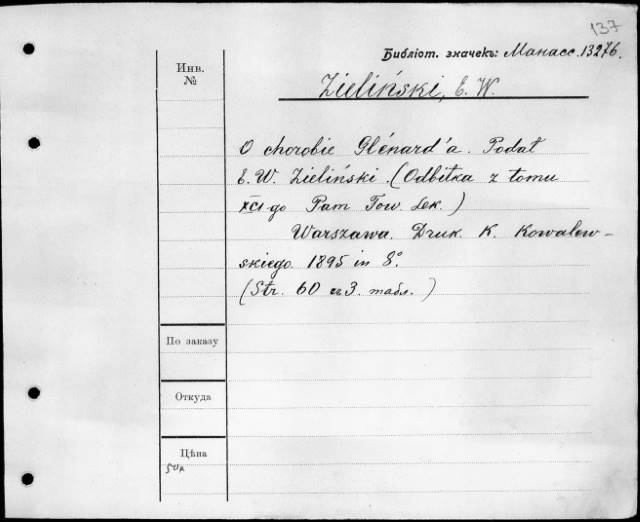 137
Библіот. значекъ: Манасс. 13276.
Инв.
№
Zieliński, E. W.
O chorobie Glénard'a. Podał
E. W. Zieliński. (Odbitka z tomu
XCI-go Pam Tow. Lek.)
Warszawa. Druk. K. Kowalew-
skiego. 1895 in 8°.
(Str. 60 съ 3. табл.)
По заказу
Откуда
Цѣна